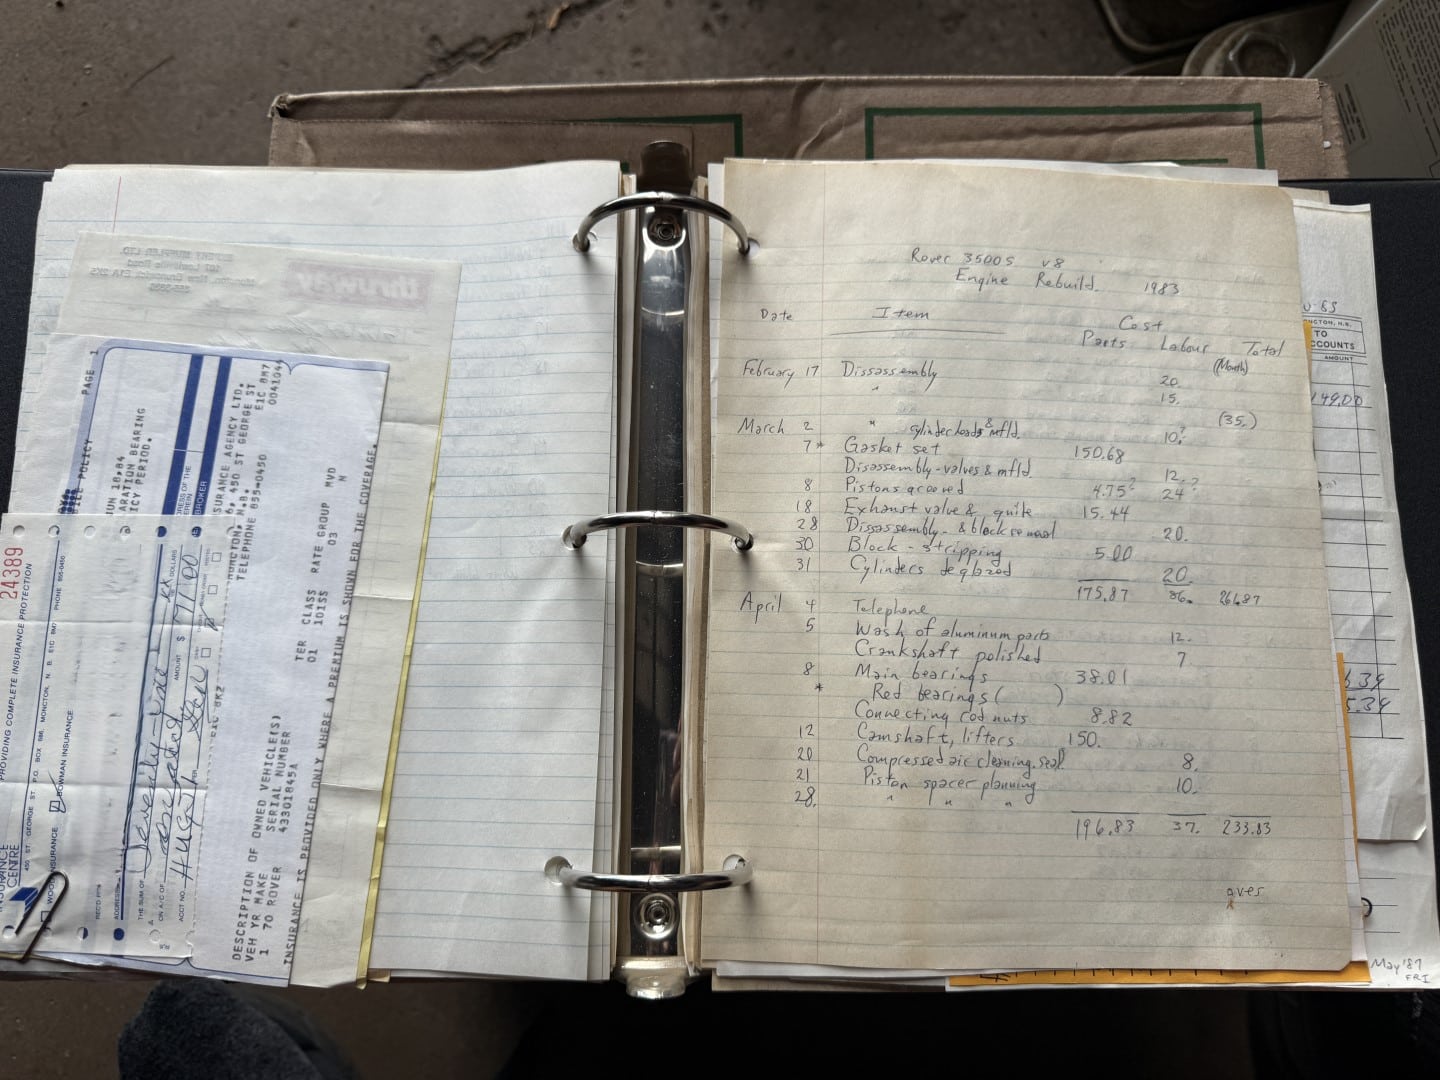 Rover 3500S V8
Engine Rebuild. 1983
Date Item Cost
Parts Labour Total
(Month)
February 17 Dissassembly 20.
" 15.
(35.)
March 2 " cylinder heads & mfld. 10?
7* Gasket set 150.68
Disassembly - valves & mfld. 12.
8 Pistons grooved 4.75? 24?
18 Exhaust valve & guide 15.44
28 Dissassembly - & block removal 20.
30 Block - stripping 5.00
31 Cylinders deglazed 20.
175.87 86. 261.87
April 4 Telephone
5 Wash of aluminum parts 12.
Crankshaft polished 7.
8 Main bearings 38.01
* Rod bearings ( )
Connecting rod nuts 8.82
12 Camshaft, lifters 150.
20 Compressed air cleaning, seal. 8.
21 Piston spacer planning 10.
28. " " "
196.83 37. 233.83
over
May '87
FRI
TO
ACCOUNTS
AMOUNT
149.00
5.34
thruway
MUFFLER LTD.
PAGE 1
POLICY
JUN 18,84
ARATION BEARING
ICY PERIOD.
BROKER
SURANCE AGENCY LTD.
450 ST GEORGE ST
MONCTON, N.B. E1C 8M7
TELEPHONE 855-0450 004104
TER CLASS RATE GROUP MVD
01 101SS 03 N
DESCRIPTION OF OWNED VEHICLE(S)
VEH YR MAKE SERIAL NUMBER
1 70 ROVER 43301845A
INSURANCE IS PROVIDED ONLY WHERE A PREMIUM IS SHOWN FOR THE COVERAGE.
24389
PROVIDING COMPLETE INSURANCE PROTECTION
INSURANCE
CENTRE
450 ST. GEORGE ST. P.O. BOX 686, MONCTON, N. B. E1C 8M7 PHONE 855-0450
WOOD INSURANCE BOWMAN INSURANCE
REC'D FROM
ADDRESS
THE SUM OF Seventy-one xx DOLLARS
ON A/C OF
ACCT NO. AMOUNT $ 71.00